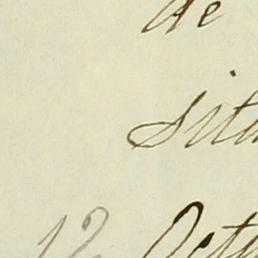 de
sita
12 Oct